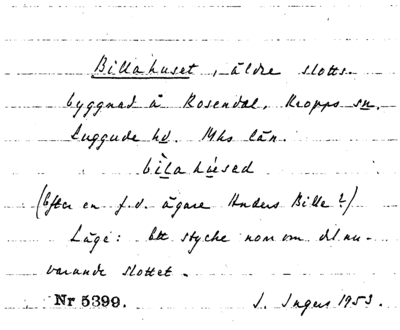 Billahuset, äldre slotts-
byggnad å Rosendal, Kropps sn.
Luggude hd. Mhs län.
bìlahùsed
(Efter en f.d. ägare Anders Bille?)
Läge: Ett stycke norr om det nu-
varande slottet.
Nr 5399. I. Ingers 1953.